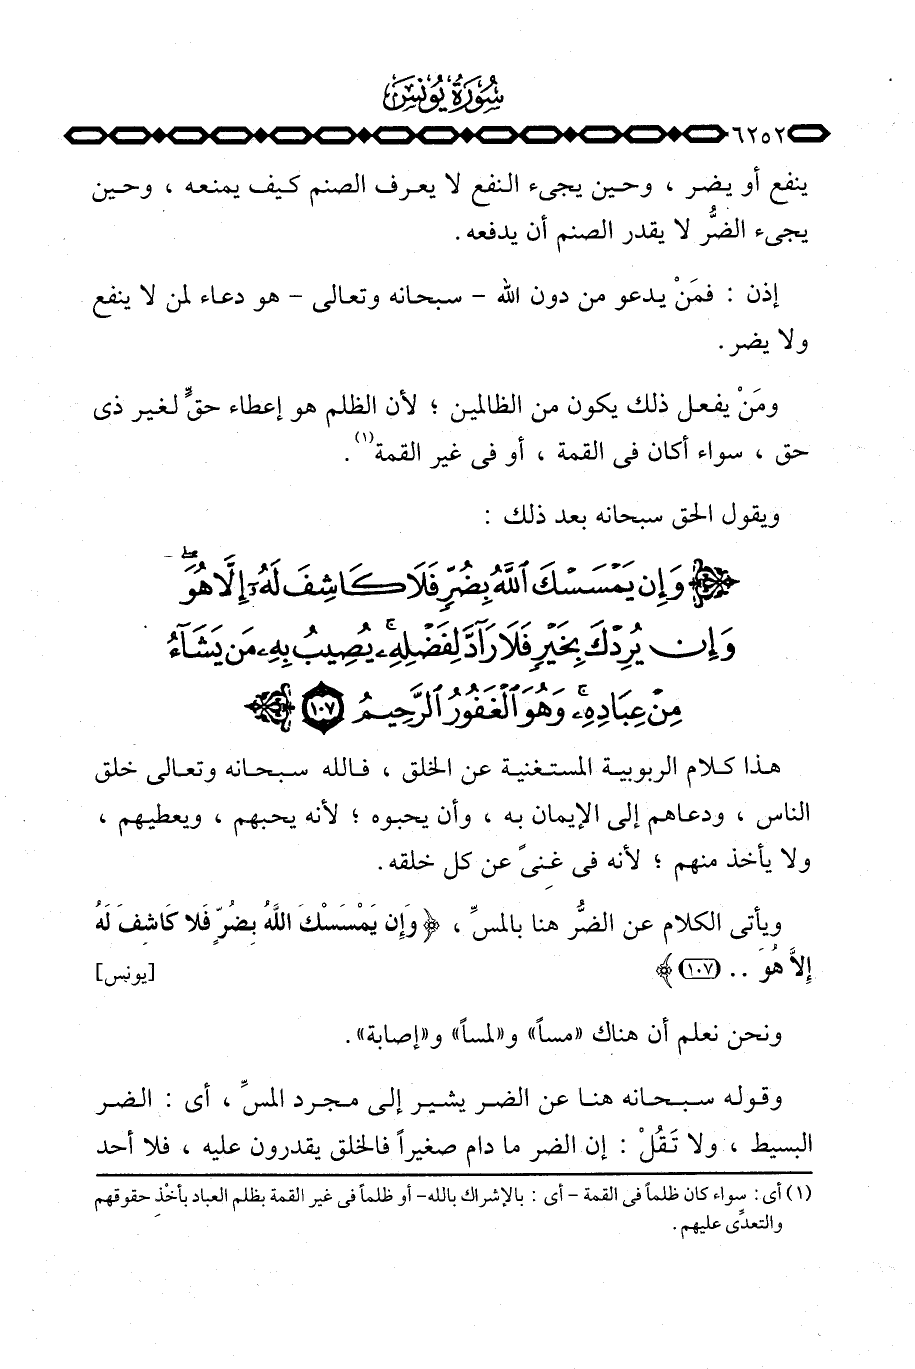 سُورَةُ يُونُسَ
٦٢٥٢
ينفع أو يضر ، وحين يجىء النفع لا يعرف الصنم كيف يمنعه ، وحين
يجىء الضُّر لا يقدر الصنم أن يدفعه .
إذن : فمَنْ يدعو من دون الله – سبحانه وتعالى – هو دعاء لمن لا ينفع
ولا يضر .
ومَنْ يفعل ذلك يكون من الظالمين ؛ لأن الظلم هو إعطاء حقٍّ لغير ذى
حق ، سواء أكان فى القمة ، أو فى غير القمة(١) .
ويقول الحق سبحانه بعد ذلك :
وَإِن يَمْسَسْكَ ٱللَّهُ بِضُرٍّ فَلَا كَاشِفَ لَهُۥٓ إِلَّا هُوَۖ
وَإِن يُرِدْكَ بِخَيْرٍ فَلَا رَآدَّ لِفَضْلِهِۦۚ يُصِيبُ بِهِۦ مَن يَشَآءُ
مِنْ عِبَادِهِۦۚ وَهُوَ ٱلْغَفُورُ ٱلرَّحِيمُ ١٠٧
هذا كلام الربوبية المستغنية عن الخلق ، فالله سبحانه وتعالى خلق
الناس ، ودعاهم إلى الإيمان به ، وأن يحبوه ؛ لأنه يحبهم ، ويعطيهم ،
ولا يأخذ منهم ؛ لأنه فى غِنىً عن كل خلقه .
ويأتى الكلام عن الضُّر هنا بالمسِّ ، ﴿ وَإِن يَمْسَسْكَ اللَّهُ بِضُرٍّ فَلا كَاشِفَ لَهُ
إِلاَّ هُوَ .. (١٠٧) ﴾ [يونس]
ونحن نعلم أن هناك «مساً» و«لمساً» و«إصابة» .
وقوله سبحانه هنا عن الضر يشير إلى مجرد المسِّ ، أى : الضر
البسيط ، ولا تَقُلْ : إن الضر ما دام صغيراً فالخلق يقدرون عليه ، فلا أحد
(١) أى : سواء كان ظلماً فى القمة – أى : بالإشراك بالله– أو ظلماً فى غير القمة بظلم العباد بأخْذِ حقوقهم
والتعدِّى عليهم .